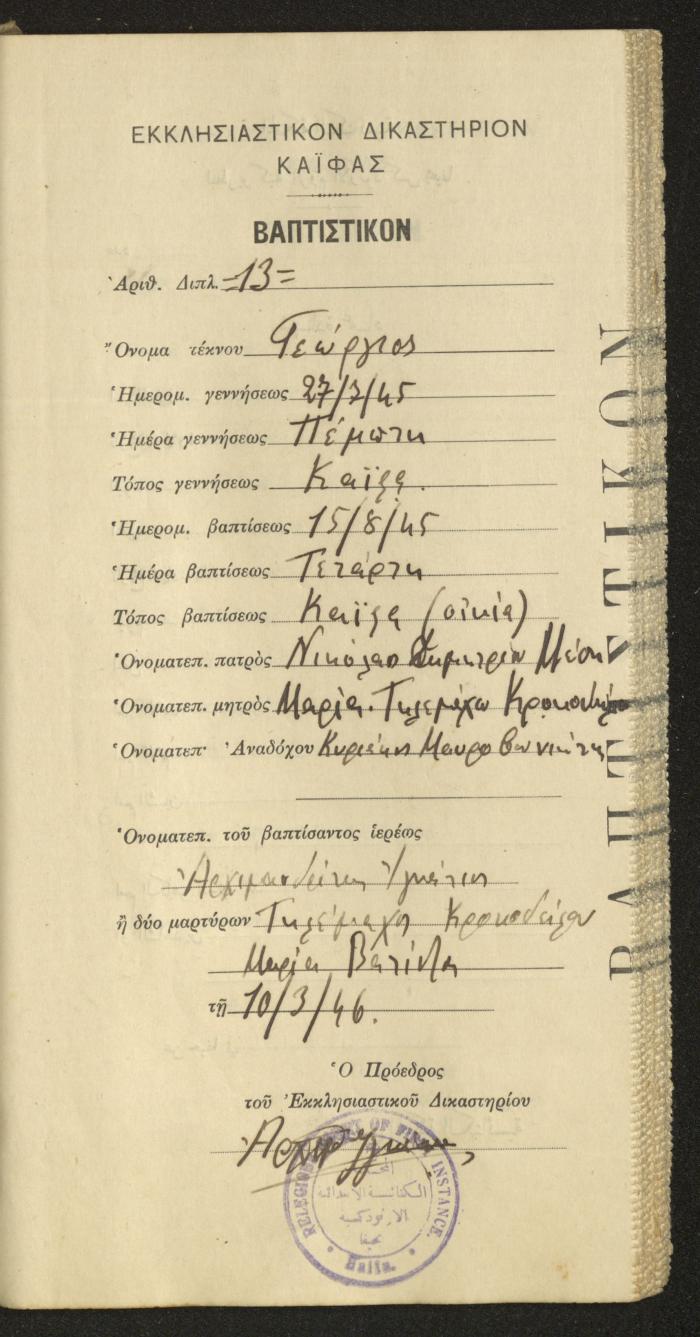 ΕΚΚΛΗΣΙΑΣΤΙΚΟΝ ΔΙΚΑΣΤΗΡΙΟΝ
ΚΑΪΦΑΣ
ΒΑΠΤΙΣΤΙΚΟΝ
Ἀριθ. Διπλ. =13=
Ὄνομα τέκνου Γεώργιος
Ἡμερομ. γεννήσεως 27/3/45
Ἡμέρα γεννήσεως Πέμπτη
Τόπος γεννήσεως Καϊφᾳ.
Ἡμερομ. βαπτίσεως 15/8/45
Ἡμέρα βαπτίσεως Τετάρτη
Τόπος βαπτίσεως Καϊφᾳ (οἰκία)
Ὀνοματεπ. πατρὸς Νικόλαο Δημητρίου
Ὀνοματεπ. μητρὸς Μαρία Τηλεμάχου
Ὀνοματεπ· Ἀναδόχου
Ὀνοματεπ. τοῦ βαπτίσαντος ἱερέως
Ἀρχιμανδρίτης Ἰγνάτιος
ἢ δύο μαρτύρων Τηλέμαχος Κροκοδείλου
Μαρία
τῇ 10/3/46.
Ὁ Πρόεδρος
τοῦ Ἐκκλησιαστικοῦ Δικαστηρίου
RELEGIOUS COURT OF FIRST INSTANCE.
الكنائسية الابتدائية
الارثوذكسية
بحيفا
Haifa.
ΒΑΠΤΙΣΤΙΚΟΝ